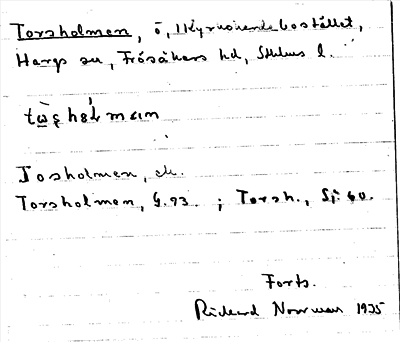 Torsholmen, ö, Kyrkoherdebostället,
Hargs sn, Frösåkers hd, Sthlms l.
tùs̨hòlmαm
Tosholmen, ek.
Torsholmen, G.93. ; Torsh., Sj. 60.
Forts.
Rickard Norrman 1935